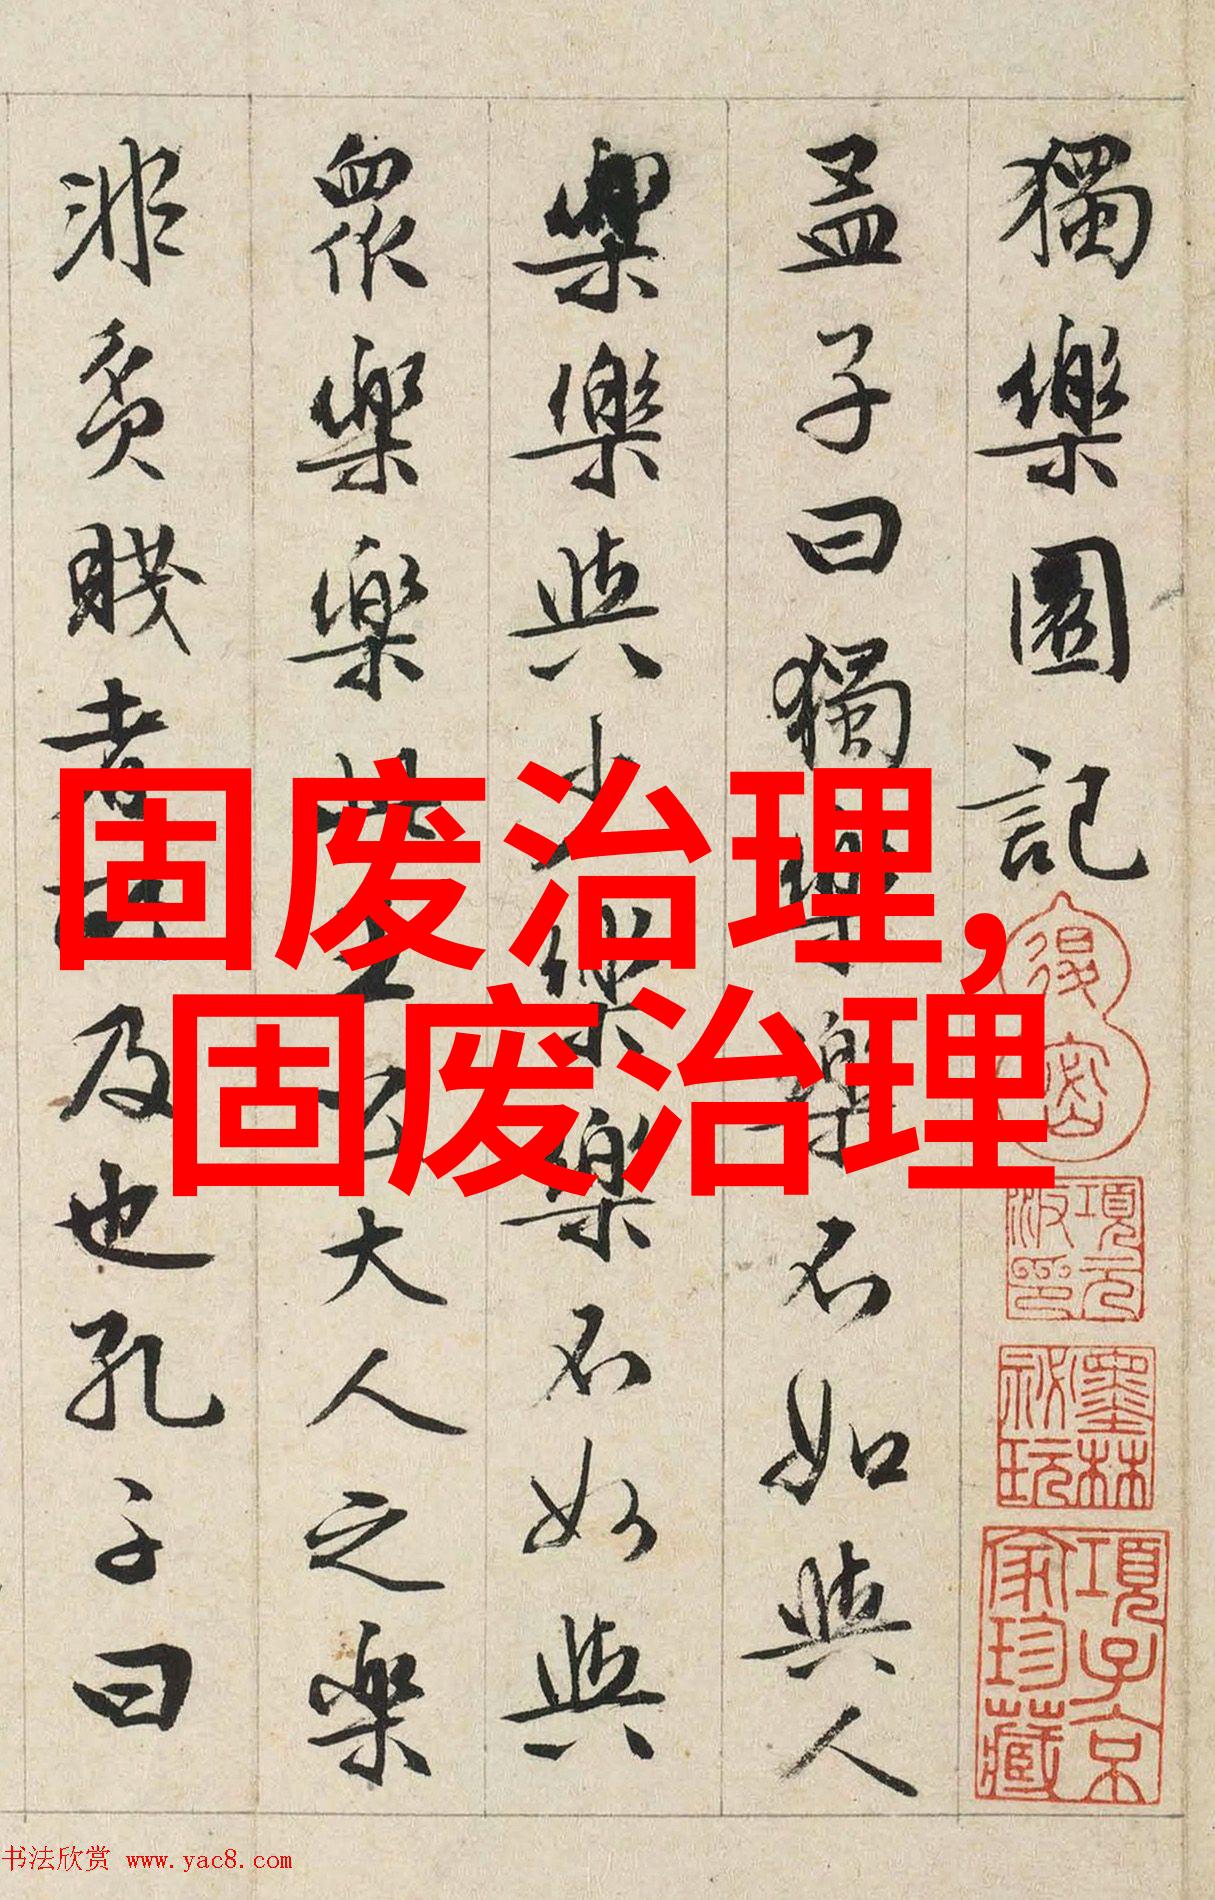 獨樂園記
孟子曰獨樂樂不如與人
樂樂與少樂樂不如與
眾樂樂此王公大人之樂
非貧賤者所及也孔子曰
固废治理,
固废治理
項元
汴印
墨林
祕玩
項子京
家珍藏
书法欣赏 www.yac8.com